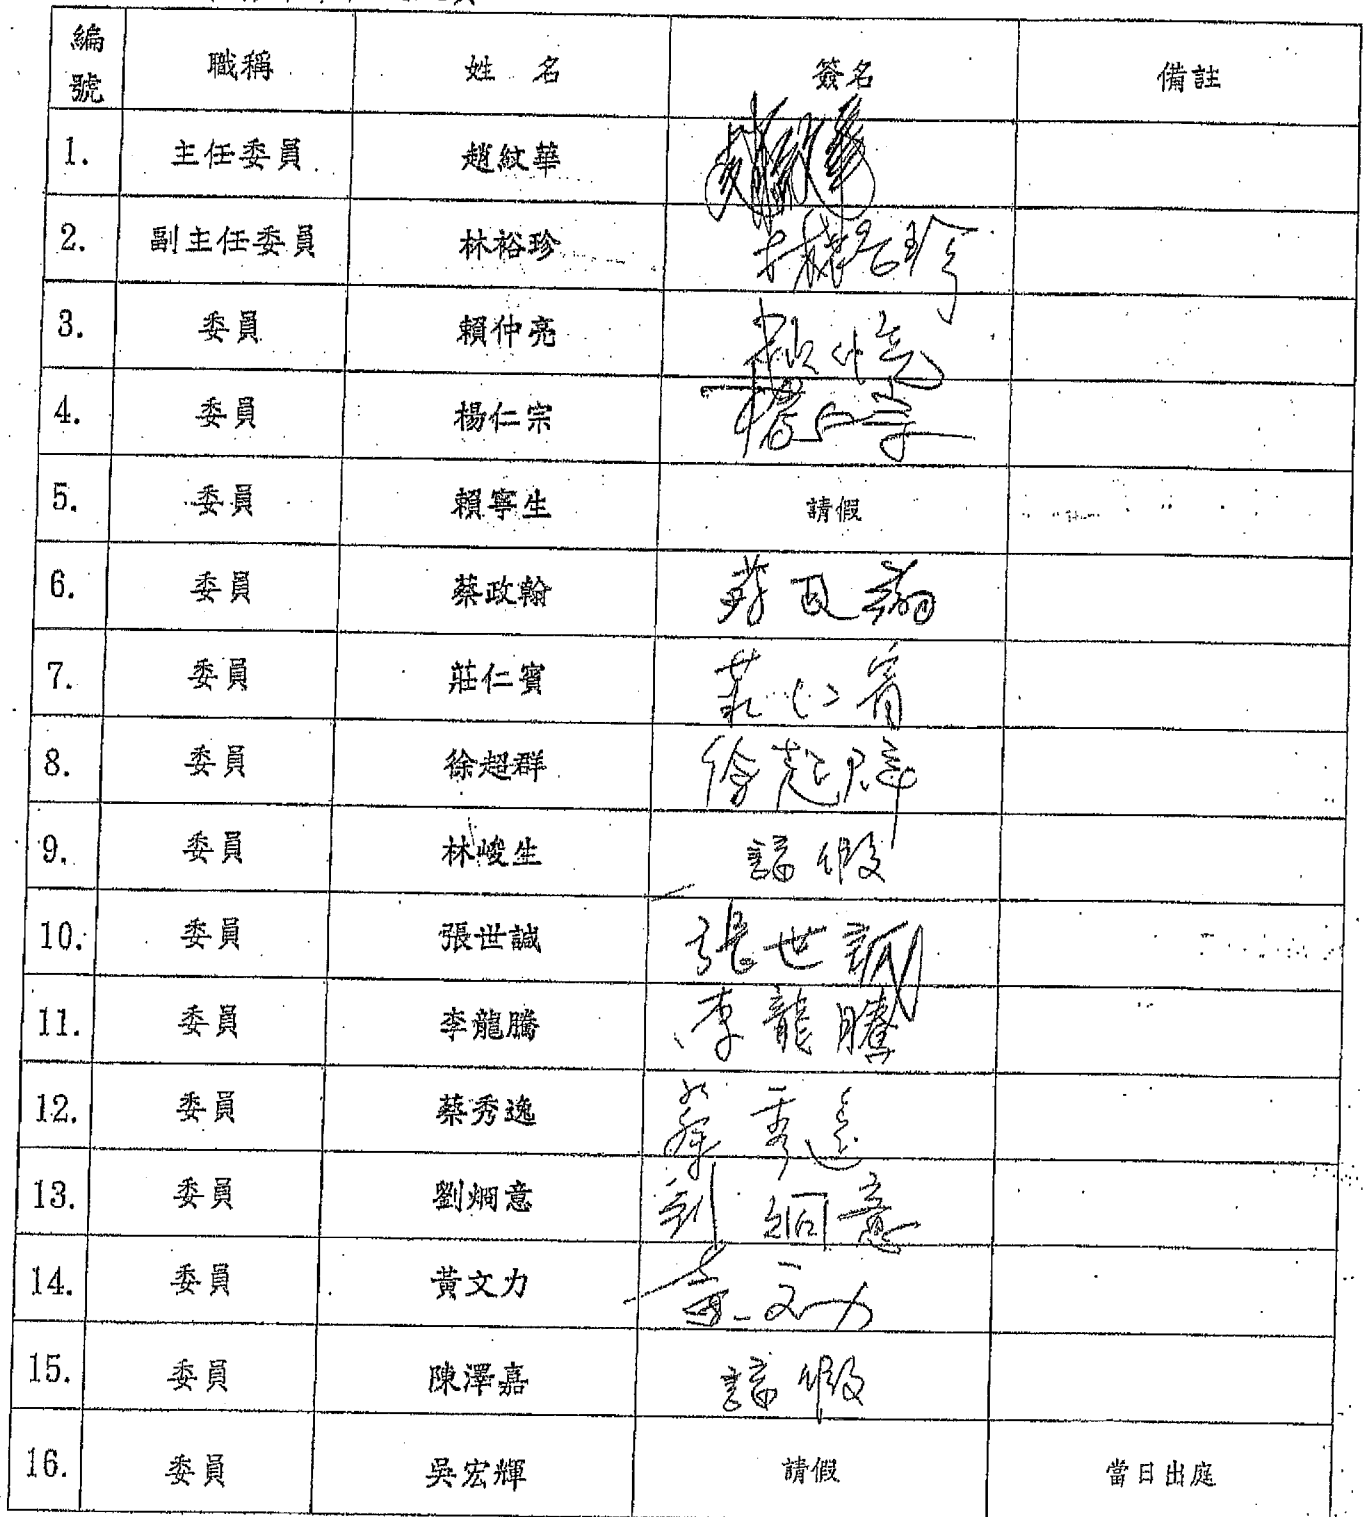 編號 職稱 姓名 簽名 備註
1. 主任委員 趙紋華 趙紋華
2. 副主任委員 林裕珍 林裕珍
3. 委員 賴仲亮 賴仲亮
4. 委員 楊仁宗 楊仁宗
5. 委員 賴寧生 請假
6. 委員 蔡政翰 蔡政翰
7. 委員 莊仁賓 莊仁賓
8. 委員 徐超群 徐超群
9. 委員 林峻生 請假
10. 委員 張世誠 張世誠
11. 委員 李龍騰 李龍騰
12. 委員 蔡秀逸 蔡秀逸
13. 委員 劉烱意 劉烱意
14. 委員 黃文力 黃文力
15. 委員 陳澤嘉 請假
16. 委員 吳宏輝 請假 當日出庭